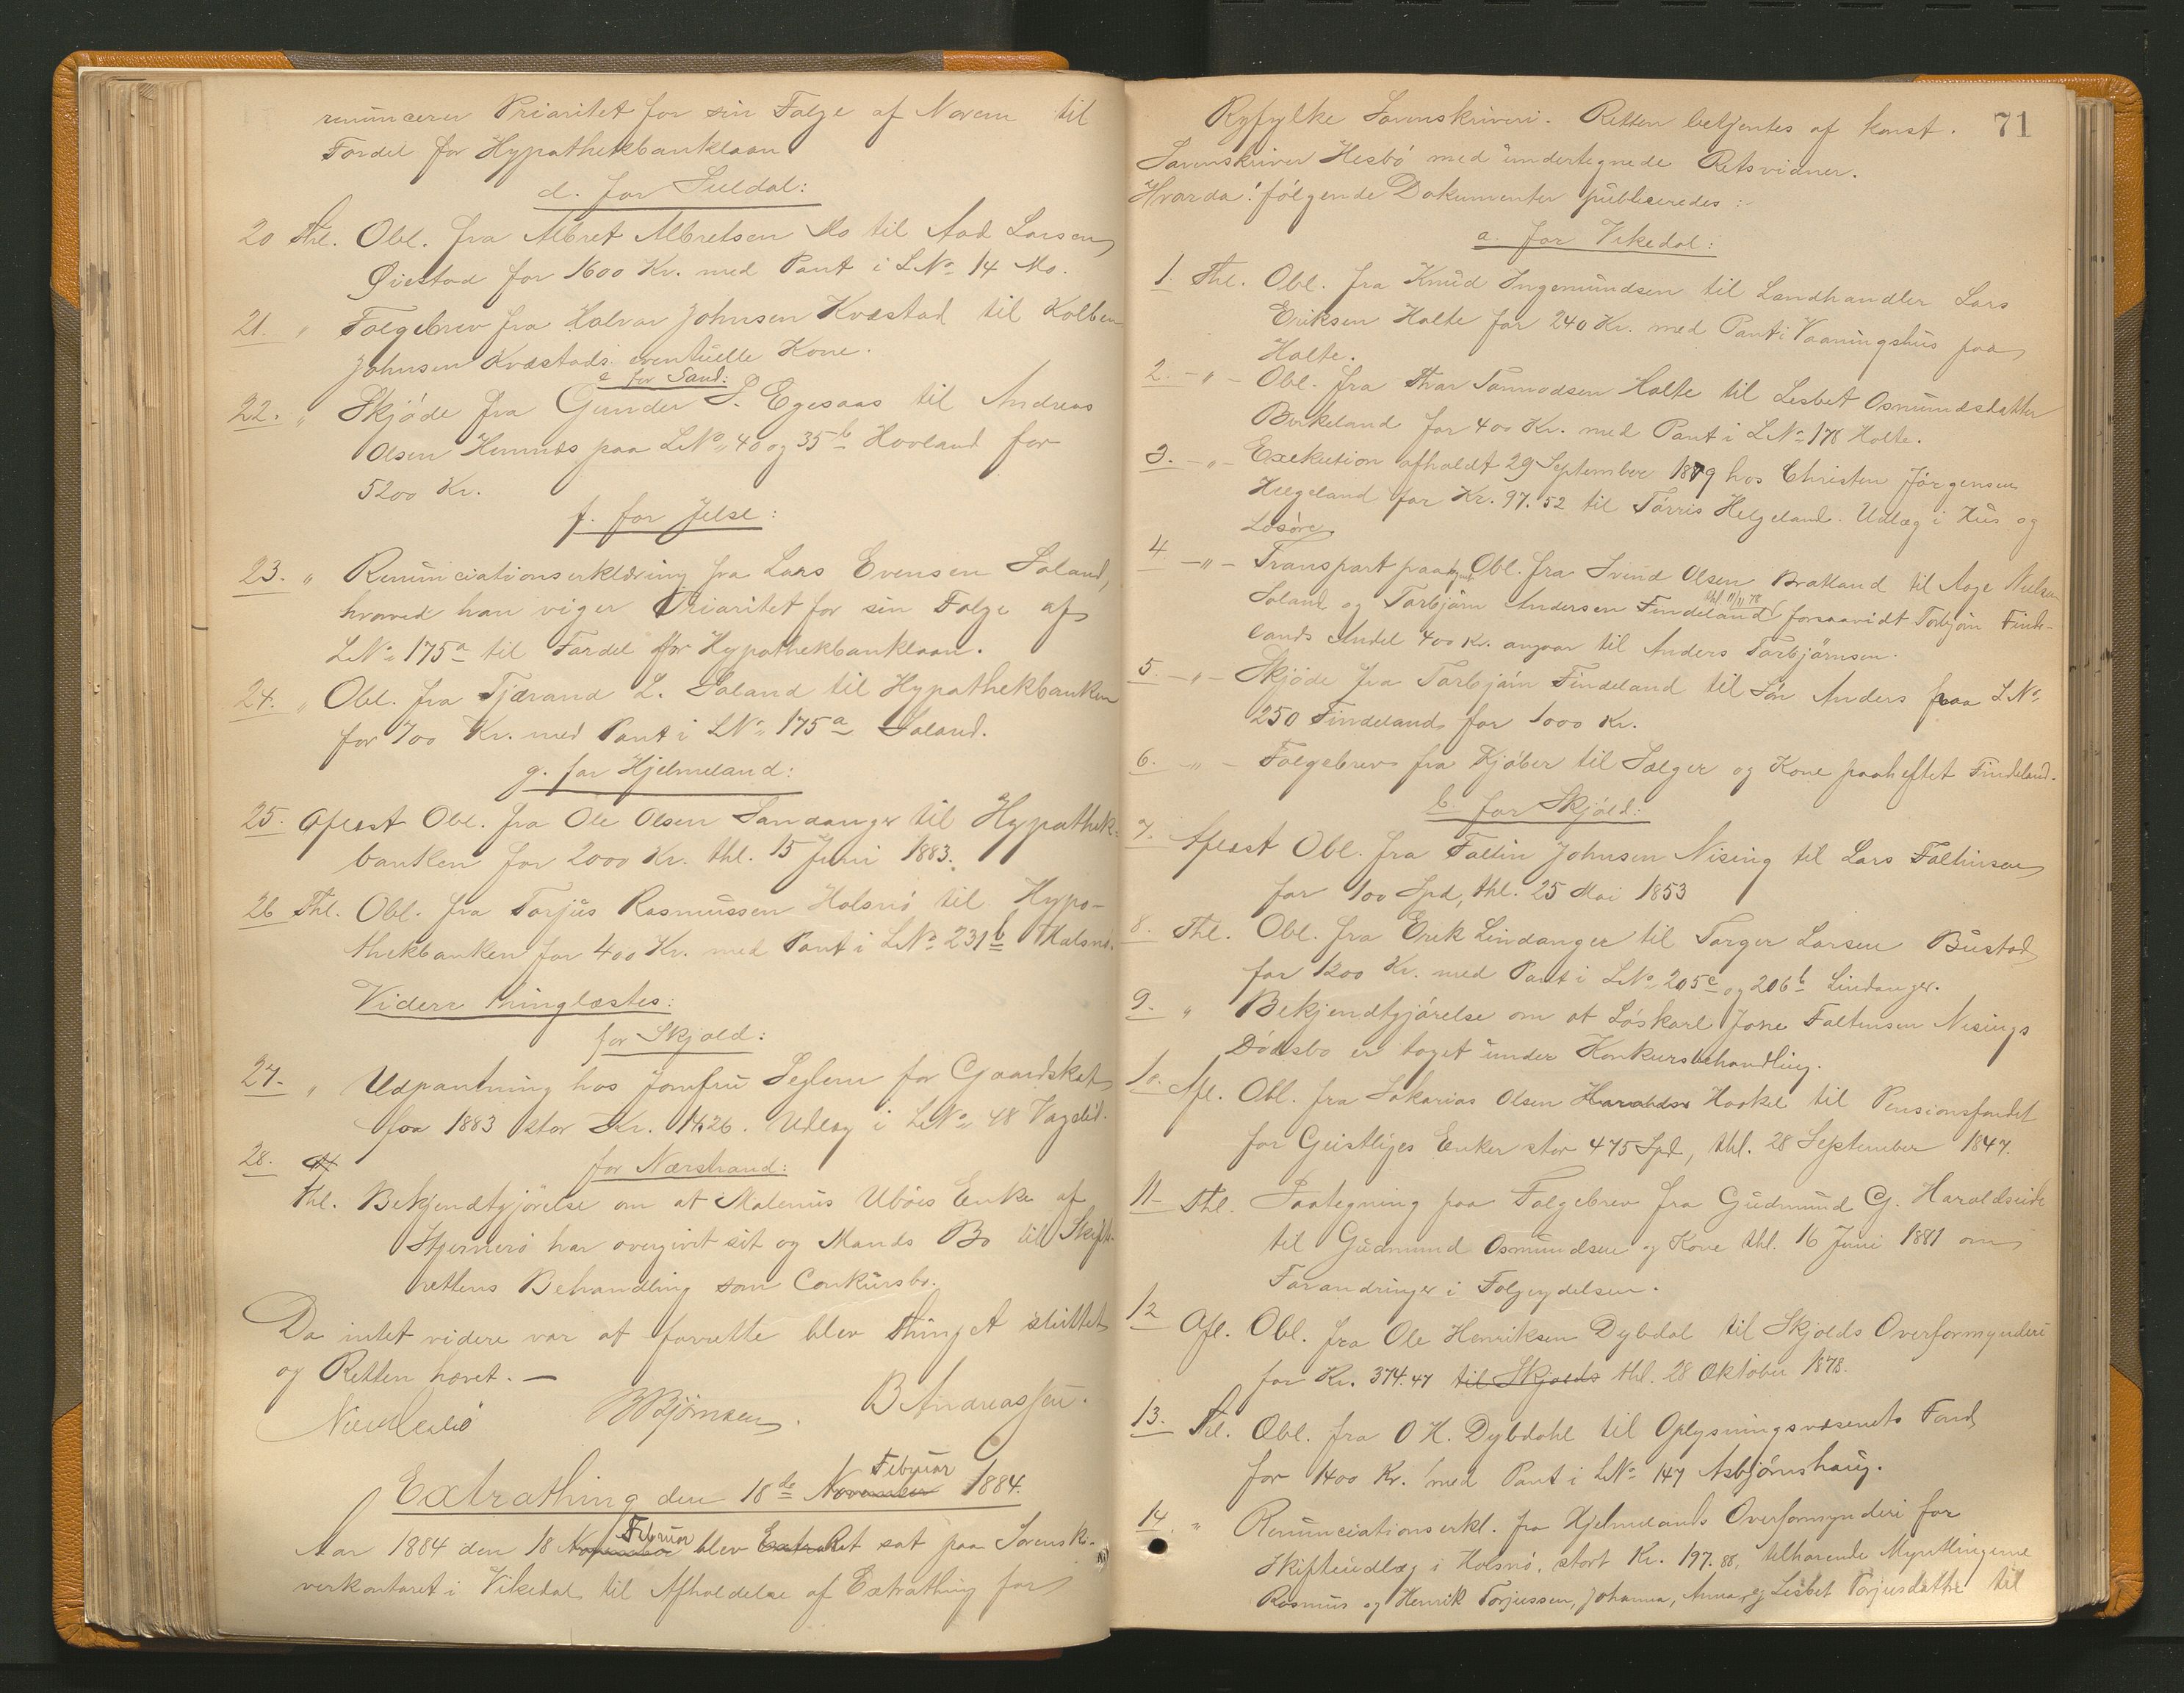 renuncerer Prioritet for sin Folge af Norem til
Fordel for Hypothekbanklaan
d. for Suldal:
20 Thl. Obl. fra Albret Albretsen Mo til Aad Larsen
Øiestad for 1600 Kr. med Pant i LNo 14 Mo.
21. " Folgebrev fra Halvor Johnsen Kvæstad til Kolben
Johnsen Kvæstads eventuelle Kone.
e for Sand:
22. " Skjöde fra Gunder S. Egesaas til Andreas
Olsen paa LNo 40 og 35b Hovland for
5200 Kr.
f. for Jelse:
23. " Renunciationserklæring fra Lars Evensen Saland,
hvorved han viger Prioritet for sin Folge af
LNo 175a til Fordel for Hypothekbanklaan.
24. " Obl. fra Tjærand L. Saland til Hypothekbanken
for 700 Kr. med Pant i LNo 175a Saland.
g. for Hjelmeland:
25. Aflæst Obl. fra Ole Olsen Sandanger til Hypothek-
banken for 2000 Kr. thl. 15 Juni 1883.
26 Thl. Obl. fra Torjus Rasmussen Halsnö til Hypo-
thekbanken for 400 Kr. med Pant i LNo 231b Halsnö.
Videre thinglæstes:
for Skjold:
27. " Udpantning hos Jomfru Seglem for Gaardskat
for 1883 stor Kr. 14,26. Udlæg i LNo 48 Vagslid.
28. for Nærstrand:
Thl. Bekjendtgjörelse om at Malenius Uböes Enke af
Stjernerö har overgivet sit og Mands Bo til Skifte-
rettens Behandling som Conkursbo.
Da intet videre var at forrette blev Thinget sluttet
og Retten hævet. —
BBjörnsen. B Andreassen.
Februar
Extrathing den 18de November 1884.
Februar
Aar 1884 den 18 November blev Extraret sat paa Sorenskri-
verkontoret i Vikedal til Afholdelse af Extrathing for
71
Ryfylke Sorenskriveri. Retten betjentes af konst.
Sorenskriver Hesbö med undertegnede Retsvidner.
Hvorda! følgende Dokumenter publiceredes:
a. for Vikedal:
1 Thl. Obl. fra Knud Ingemundsen til Landhandler Lars
Eriksen Holte for 240 Kr. med Pant i Vaaningshus paa
Holte.
2. - " - Obl. fra Thor Tormodsen Holte til Lisbet Osmundsdatter
Birkeland for 400 Kr. med Pant i LNo 178 Holte.
3. - " - Exekution afholdt 29 September 1879 hos Christen Jörgensen
Helgeland for Kr. 97.52 til Torris Helgeland. Udlæg i Hus og
Lösöre.
4 - " - Transport paa Obl. fra Svend Olsen Bratland til Aage Nielsen
thl. 11/11 78
Soland og Torbjörn Andersen Findeland forsaavidt Torbjörn Finde-
lands Andel 400 Kr. angaar til Anders Torbjörnsen.
5. - " - Skjöde fra Torbjörn Findeland til Sön Anders paa LNo
250 Findeland for 1000 Kr.
6. - " - Folgebrev fra Kjöber til Sælger og Kone paaheftet Findeland.
b. for Skjold:
7. Aflæst Obl. fra Faltin Johnsen Nising til Lars Faltinsen
for 100 Spd, thl. 25 Mai 1853
8. Thl. Obl. fra Erik Lindanger til Torger Larsen Bustad
for 1200 Kr. med Pant i LNo 205c og 206b Lindanger.
9. " Bekjendtgjörelse om at Löskarl Jone Faltinsen Nisings
Dödsbo er taget under Konkursbehandling.
10. Afl. Obl. fra Sakarias Olsen Haralds Haakel til Pensionsfondet
for Geistliges Enker stor 475 Spd, thl. 28 September 1847.
11 - Thl. Paategning paa Folgebrev fra Gudmund G. Haraldseide
til Gudmund Osmundsen og Kone thl. 16 Juni 1881 om
Forandringer i Folgeydelsen.
12 Afl. Obl. fra Ole Henriksen Dybdal til Skjolds Overformynderi
for Kr. 374.47 til Skjolds thl. 28 Oktober 1878.
13. Thl. Obl. fra O H. Dybdahl til Oplysningsvæsenets Fond
for 1400 Kr. med Pant i LNo 147 Asbjörnshaug.
14. " Renunciationserkl. fra Hjelmelands Overformynderi for
Skifteudlæg i Halsnö, stort Kr. 197.88, tilhörende Myndlingerne
Rasmus og Henrik Torjussen, Johanna, Anna og Lisbet Torjusdatter til